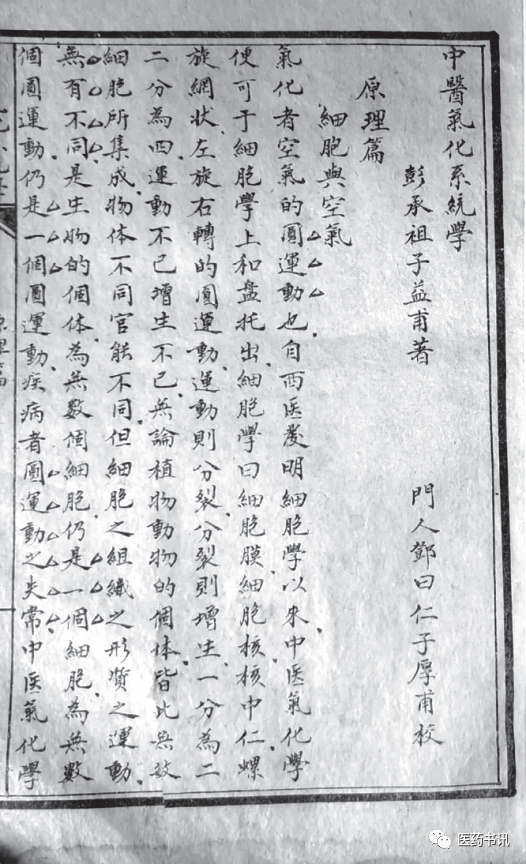 中醫氣化系統學
彭承祖子益甫著 門人鄧曰仁子厚甫校
原理篇
細胞與空氣
氣化者空氣的圓運動也自西医發明細胞學以來中医氣化學
便可于細胞學上和盤托出細胞學曰細胞膜細胞核核中仁螺
旋網状左旋右轉的圓運動運動則分裂分裂則增生一分為二
二分為四運動不已增生不已無論植物動物的個体皆此無数
細胞所集成物体不同官能不同但細胞之組織之形質之運動
無有不同是生物的個体為無数個細胞仍是一個細胞為無數
個圓運動仍是一個圓運動疾病者圓運動之失常中医氣化學
医药书讯